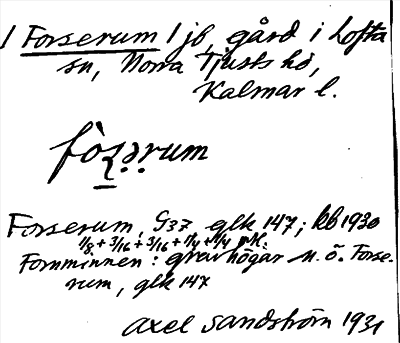 1 Forserum 1 jb, gård i Lofta
sn, Norra Tjusts hd,
Kalmar l.
fò̱ʂə̣ṛum
Forserum, G37 glk 147; kb 1930
1/8 + 3/16 + 3/16 + 1/4 + 1/4 mtl.
Fornminnen: gravhögar n. ö. Forse-
rum, glk 147
Axel Sandström 1931